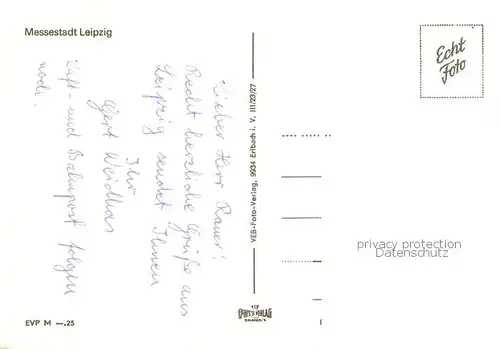 Messestadt Leipzig
Lieber Herr Rauer!
Recht herzliche Grüße aus
Leipzig sendet Ihnen
Ihr
Gert Weidhas
Luft- und Bahnpost folgen
noch.
EVP M —,25
VEB-Foto-Verlag, 9934 Erlbach i. V. III/23/27
FOTO-VERLAG
ERLBACH/V.
Echt
Foto
privacy protection
Datenschutz